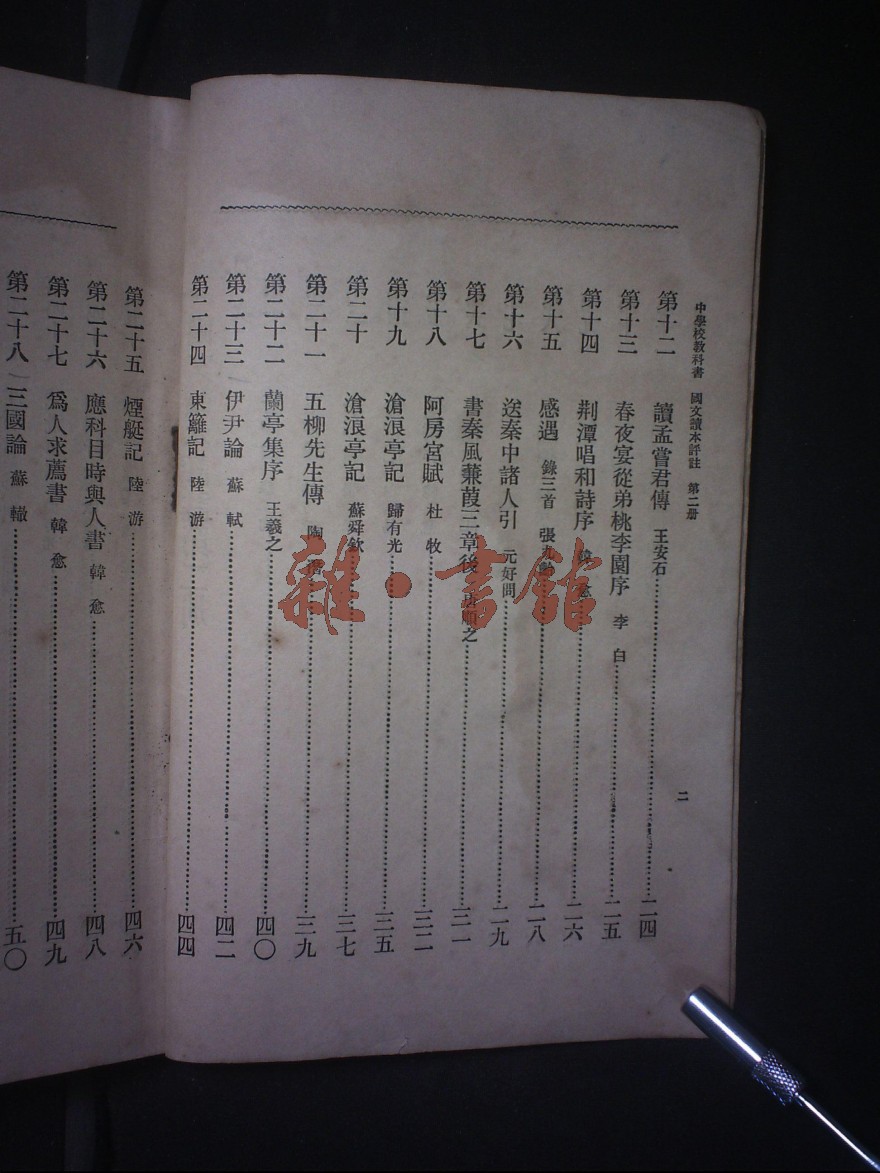 中學校教科書 國文讀本評註 第二册
二
第十二 讀孟嘗君傳 王安石 二四
第十三 春夜宴從弟桃李園序 李白 二五
第十四 荆潭唱和詩序 韓愈 二六
第十五 感遇 錄三首 張九齡 二八
第十六 送秦中諸人引 元好問 二九
第十七 書秦風蒹葭三章後 唐順之 三一
第十八 阿房宮賦 杜牧 三二
第十九 滄浪亭記 歸有光 三五
第二十 滄浪亭記 蘇舜欽 三七
第二十一 五柳先生傳 陶潛 三九
第二十二 蘭亭集序 王羲之 四〇
第二十三 伊尹論 蘇軾 四二
第二十四 東籬記 陸游 四四
第二十五 煙艇記 陸游 四六
第二十六 應科目時與人書 韓愈 四八
第二十七 爲人求薦書 韓愈 四九
第二十八 三國論 蘇轍 五〇
雜·書館